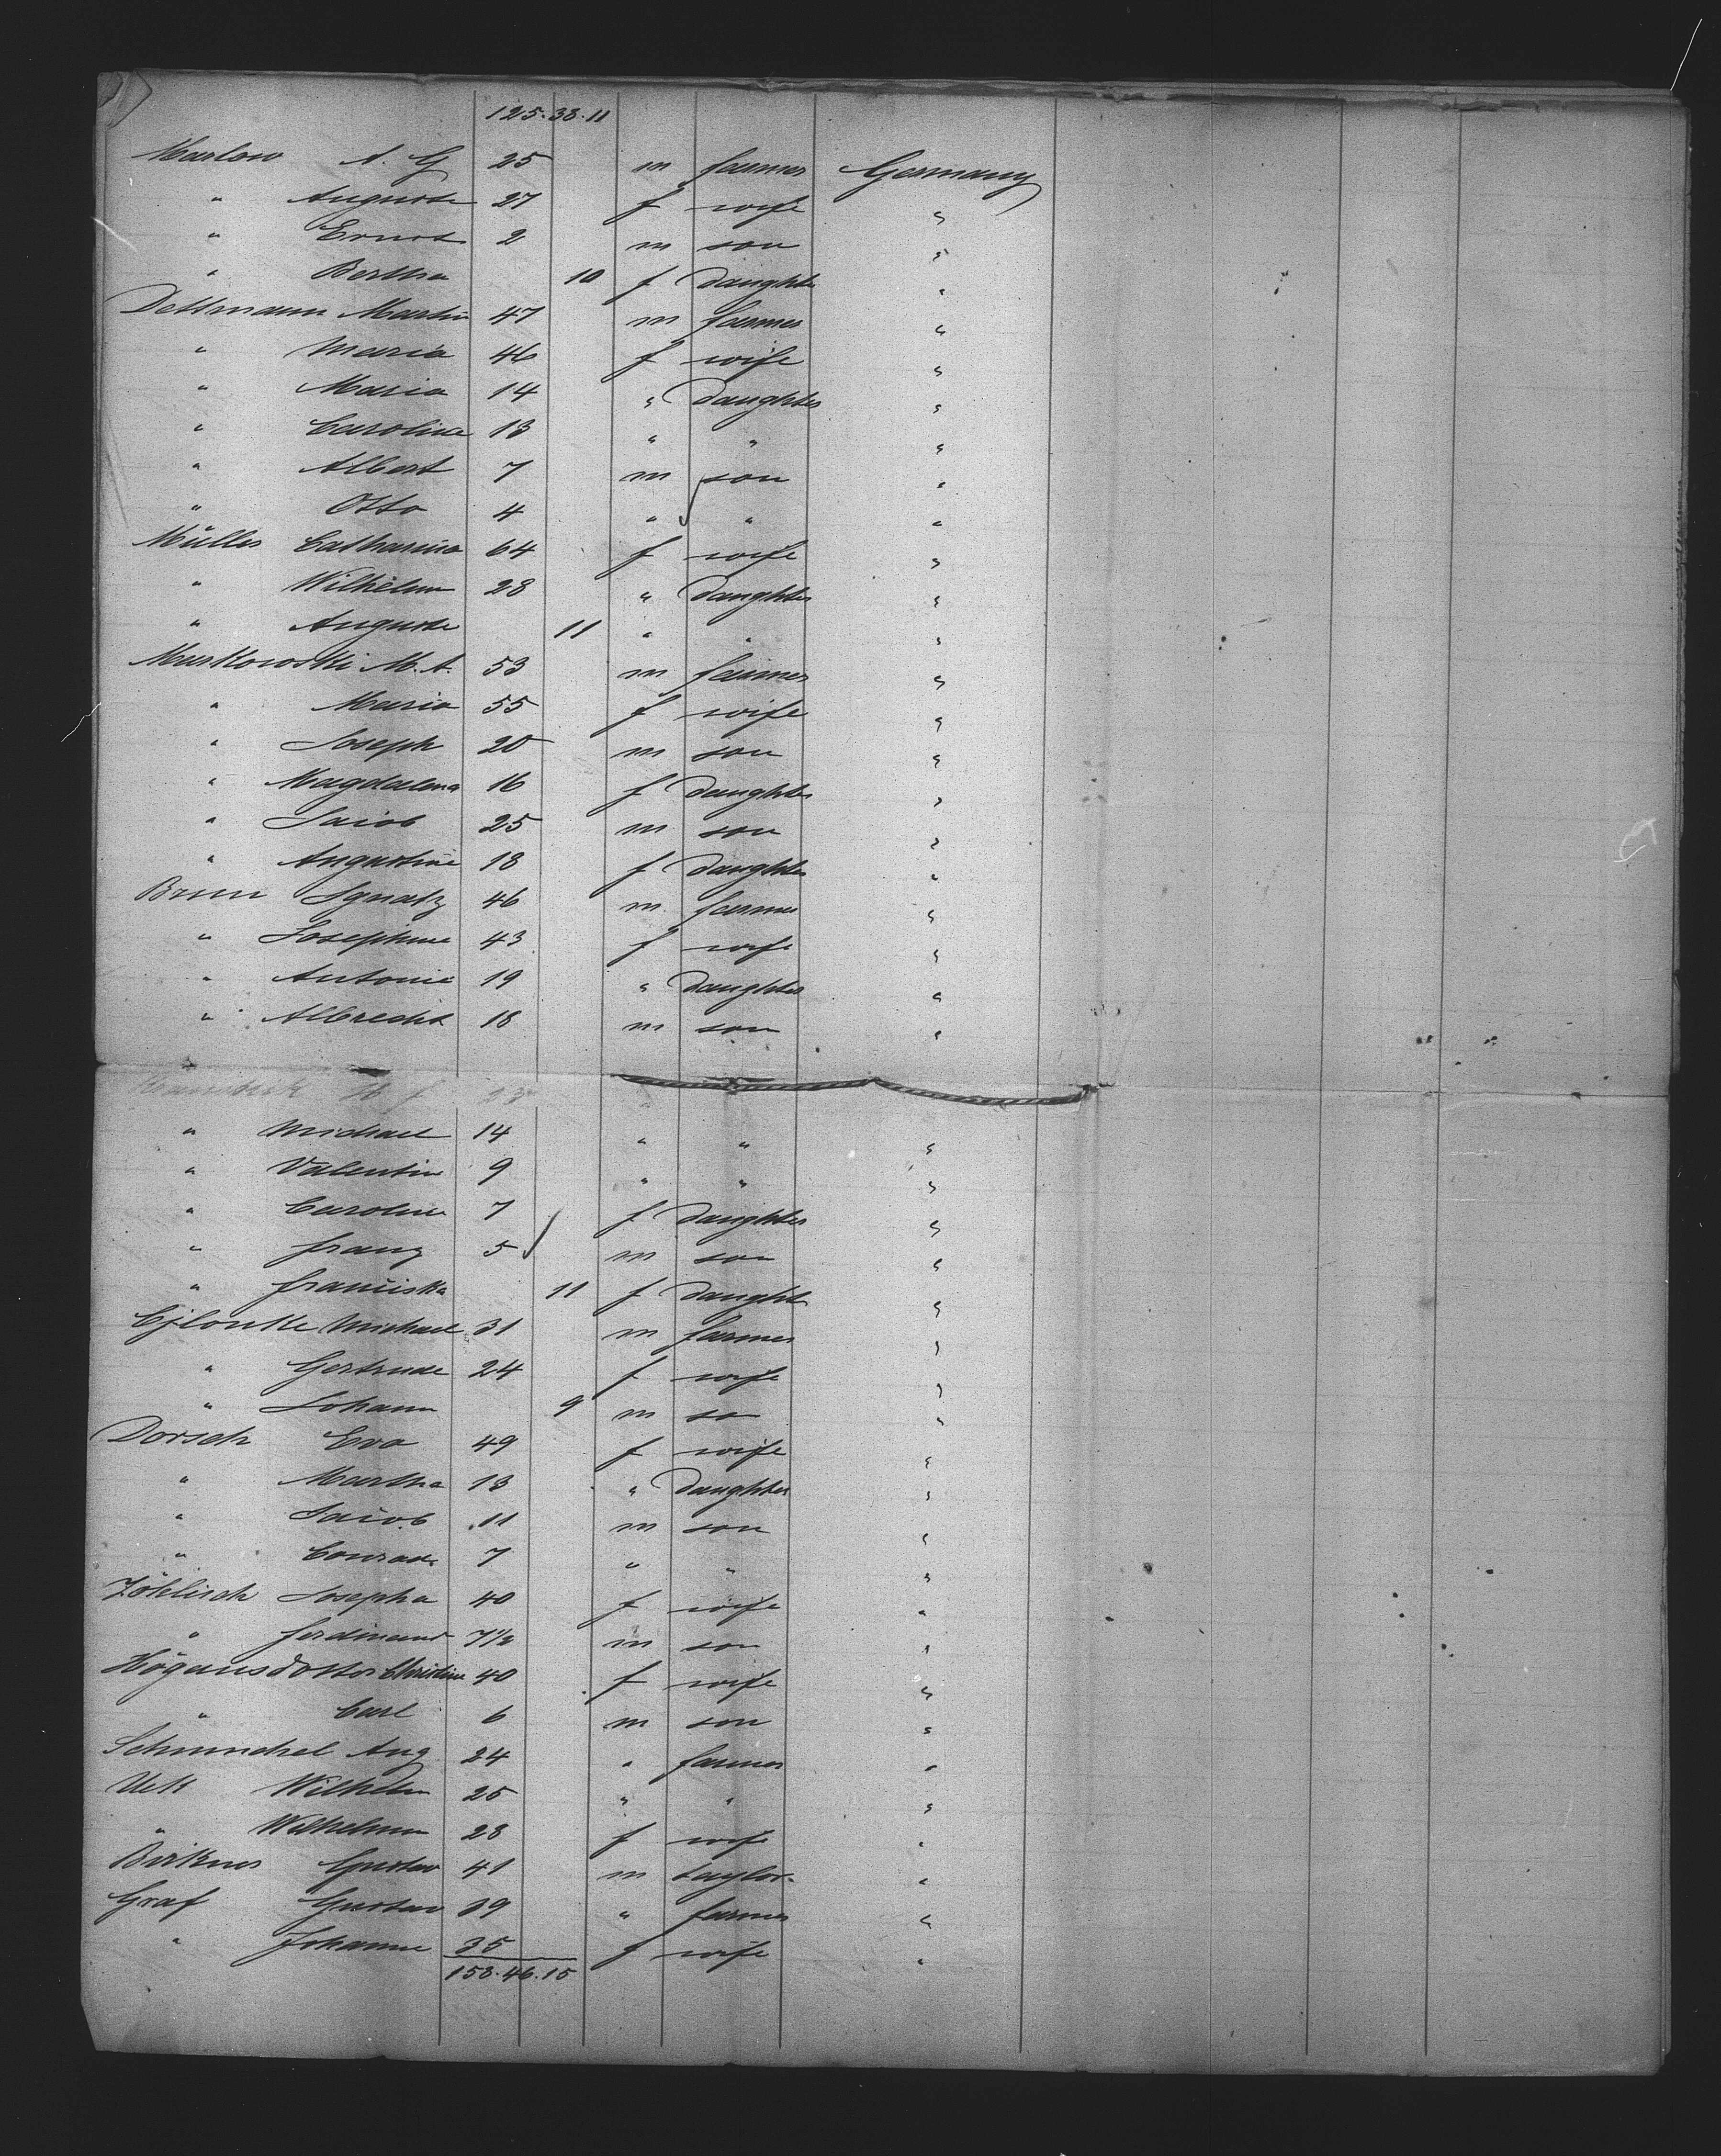 125. 38. 11
Marlow A. G 25 m farmer Germany
" Auguste 27 f wife "
" Ernst 2 m son "
" Bertha 10 f daught "
Dettmann Martin 47 m farmer "
" Maria 46 f wife "
" Maria 14 " daughter "
" Carolina 13 " " "
" Albert 7 m son "
" Otto 4 " " "
Müller Catharina 64 f wife "
" Wilhelm 28 " daughter "
" Auguste 11 " " "
Murkowski M. A. 53 m farmer "
" Maria 55 f wife "
" Joseph 20 m son "
" Magdalena 16 f daughter "
" Jacob 25 m son "
" Augustine 18 f daughter "
Brun Ignatz 46 m farmer "
" Josephine 43 f wife "
" Antonie 19 " daughter "
" Albrecht 18 m son "
" Michael 14 " " "
" Valentin 9 " " "
" Caroline 7 f daughter "
" Franz 5 m son "
" Franciska 11 f daught "
Michael 31 m farmer "
" Gertrude 24 f wife "
" Johann 9 m so "
Dorsch Eva 49 f wife "
" Martha 13 " daughter "
" Jacob 11 m son "
" Conrad 7 " " "
Zöhlisch Josepha 40 f wife "
" Ferdinand 7½ m son "
Högansdotter Christine 40 f wife "
" Carl 6 m son "
Schmuckel Aug 24 " farmer "
Uck Wilhelm 25 " " "
" Wilhelmn 28 f wife "
Birkner Gustav 41 m taylor "
Graf Gustav 39 " farmer "
" Johanne 35 f wife "
158. 46. 15